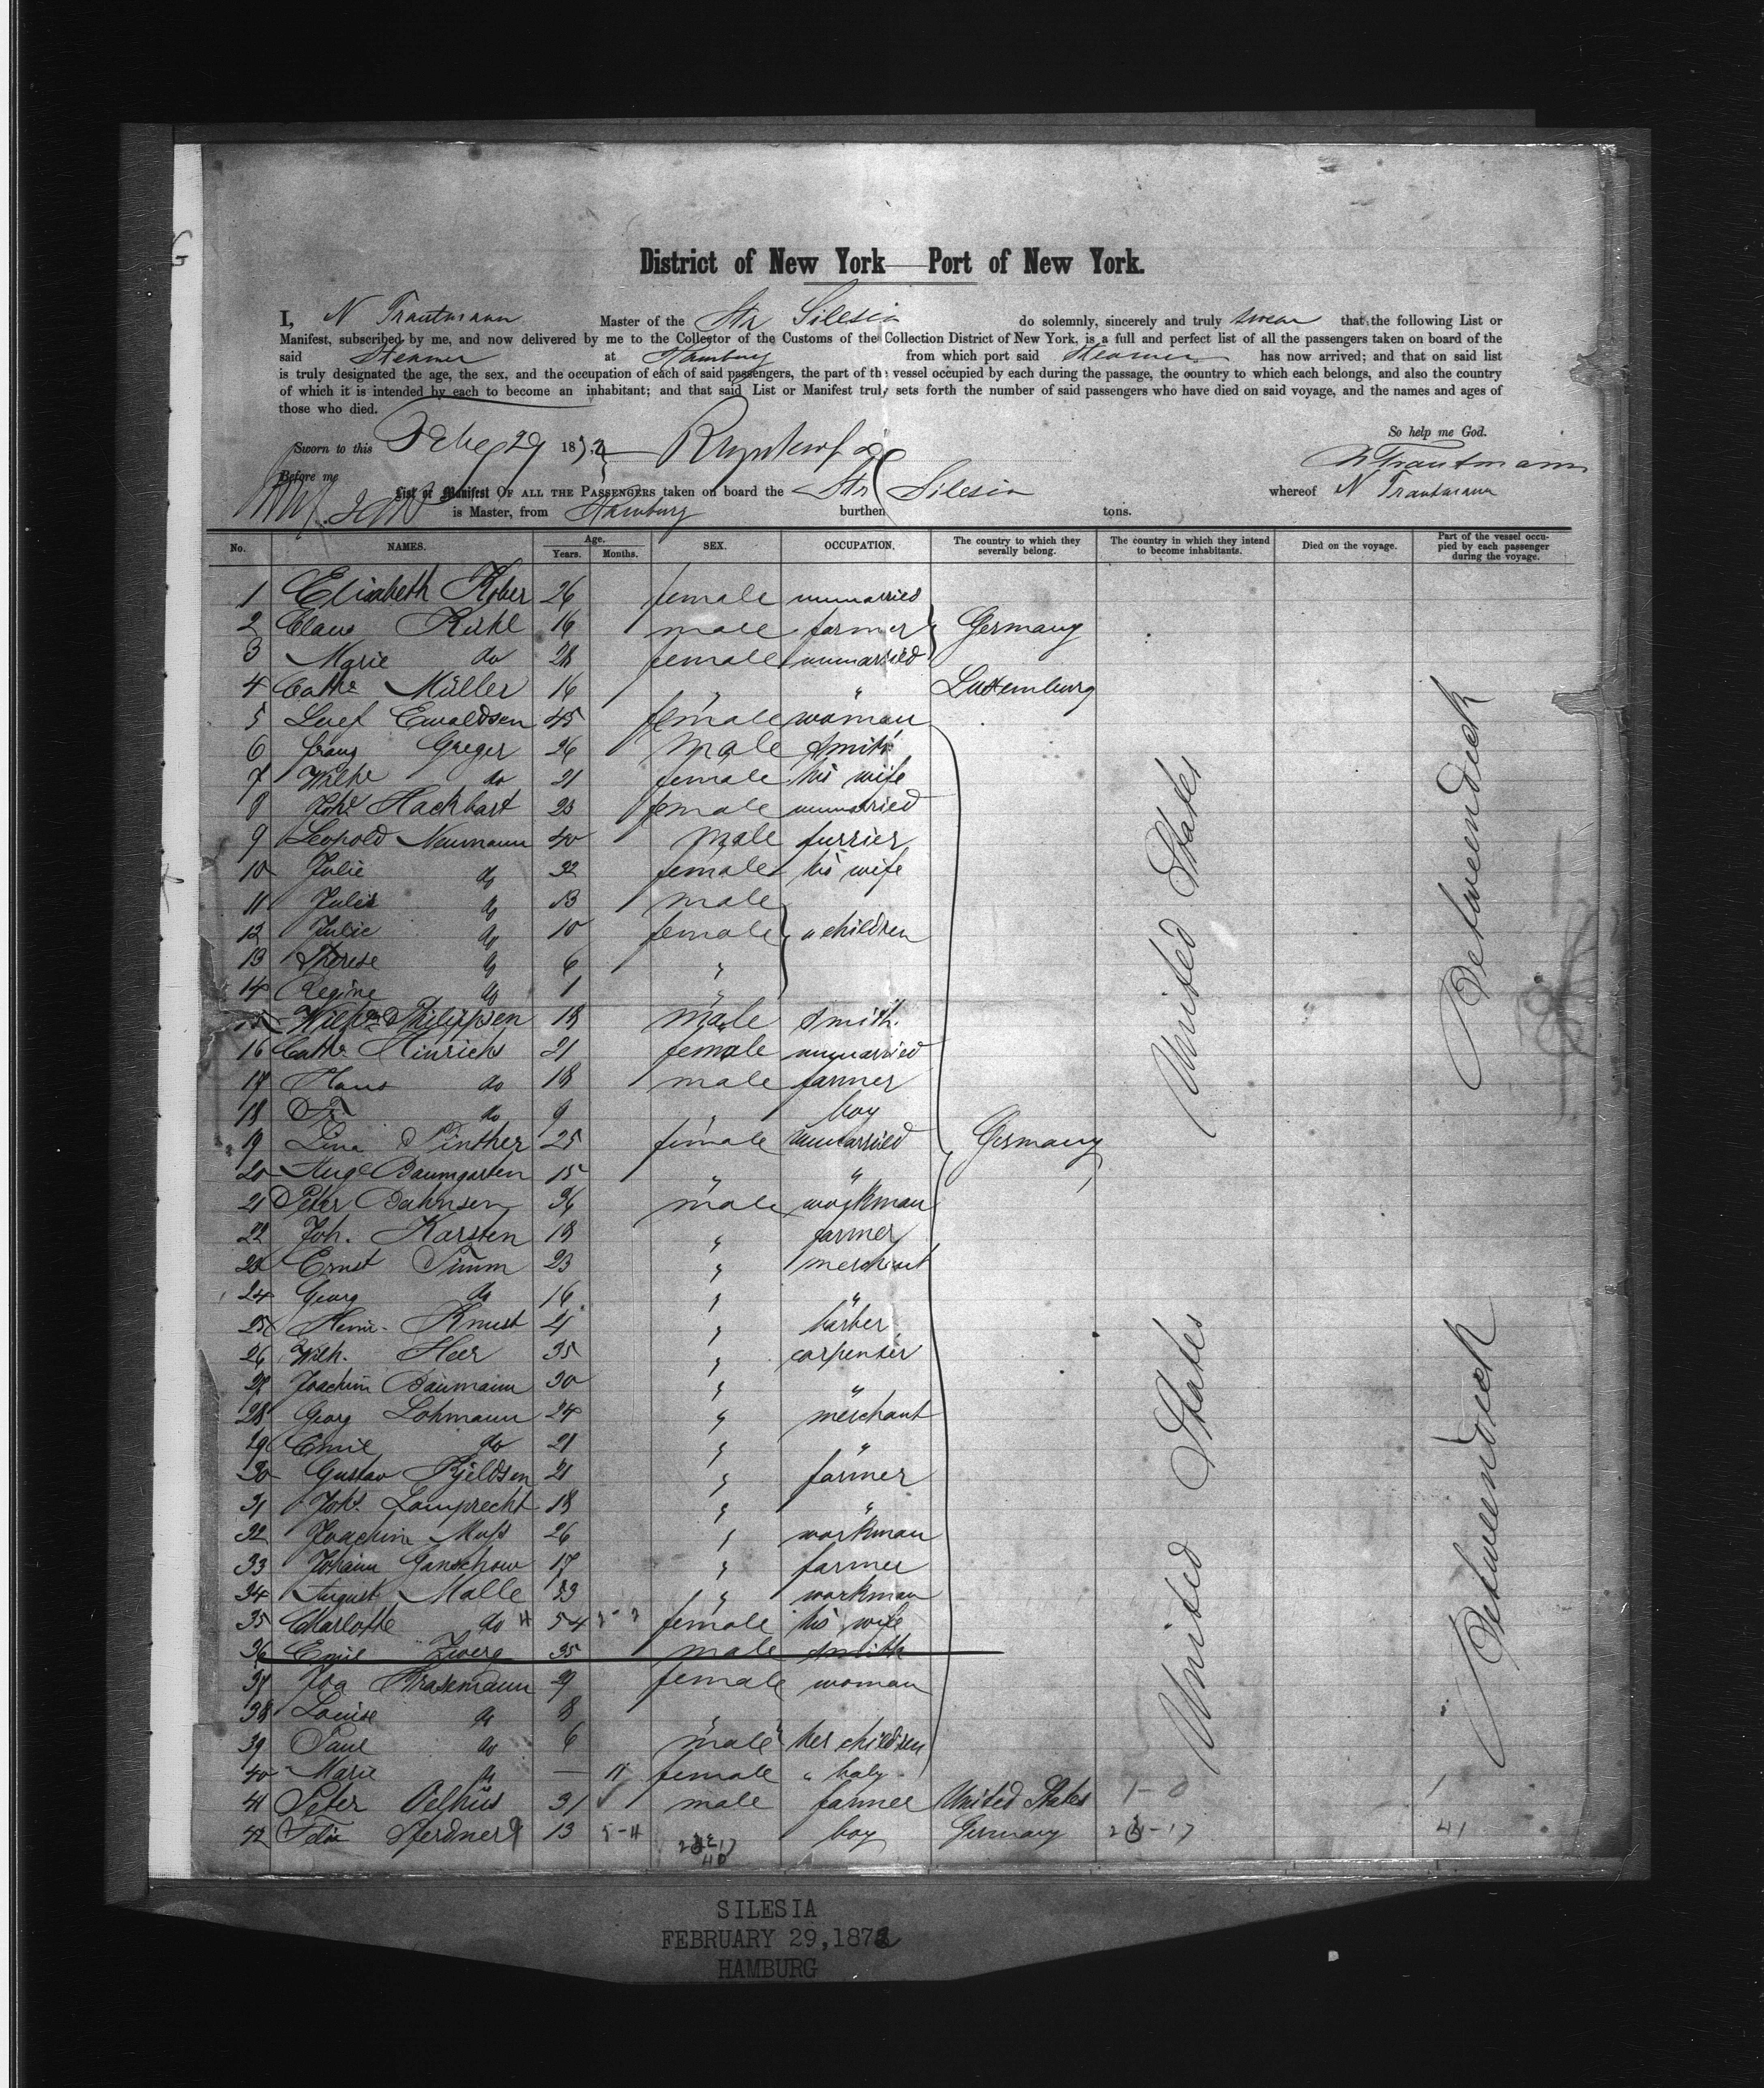 District of New York—Port of New York.
I, N Trautmann Master of the Str Silesia do solemnly, sincerely and truly swear that the following List or
Manifest, subscribed by me, and now delivered by me to the Collector of the Customs of the Collection District of New York, is a full and perfect list of all the passengers taken on board of the
said Steamer at Hamburg from which port said Steamer has now arrived; and that on said list
is truly designated the age, the sex, and the occupation of each of said passengers, the part of the vessel occupied by each during the passage, the country to which each belongs, and also the country
of which it is intended by each to become an inhabitant; and that said List or Manifest truly sets forth the number of said passengers who have died on said voyage, and the names and ages of
those who died.
So help me God.
Sworn to this Feby 29 1872
N Trautmann
Before me
List or Manifest OF ALL THE PASSENGERS taken on board the Str Silesia whereof N Trautmann
is Master, from Hamburg burthen tons.
No. NAMES. Age. Years. Months. SEX. OCCUPATION. The country to which they severally belong. The country in which they intend to become inhabitants. Died on the voyage. Part of the vessel occupied by each passenger during the voyage.
1 Elisabeth Kober 26 female unmarried
2 Claus 16 male farmer Germany
3 Marie do 28 female unmarried
4 Cathe Müller 16 " " Luxemburg
5 Ewaldsen 45 female woman
6 Franz Greger 26 male smith
7 Wilhe do 21 female his wife
8 Hackbart 23 female unmarried
9 Leopold Neumann 40 male furrier
10 Julie do 32 female his wife
11 do 13 male
12 Julie do 10 female " children
13 Therese do 6 "
14 Regine do 1 "
15 Philippsen 18 male smith
16 Cathe Hinrichs 21 female unmarried
17 Hans do 18 male farmer
18 Fr do 9 " boy
19 Lina Pinther 25 female unmarried Germany
20 Auge Baumgarten 15 " "
21 Peter Bahnsen 36 male workman
22 Joh. Karsten 18 " farmer
23 Ernst Timm 23 " merchant
24 Georg do 16 " "
25 Heinr. Knust 21 " barber
26 Wilh. Heer 35 " carpenter
27 Joachim Baumann 30 " "
28 Georg Lohmann 24 " merchant
29 Emil do 21 " "
30 Gustav Kjeldsen 21 " farmer
31 Johs. Lamprecht 18 " "
32 Joachim 26 " workman
33 Johann Ganschow 17 " farmer
34 August Malle 53 " workman
35 Charlotte do 54 female his wife
36 Emil Zwerg 35 male smith
37 Ida 29 female woman
38 Louise do 8 "
39 Paul do 6 male her children
40 Marie do — 11 female " baby
41 Peter 31 male farmer United States 1-0 1
42 Felix 13 5-4 boy Germany 41
United States
United States
Betweendeck
Betweendeck
SILESIA
FEBRUARY 29,1872
HAMBURG